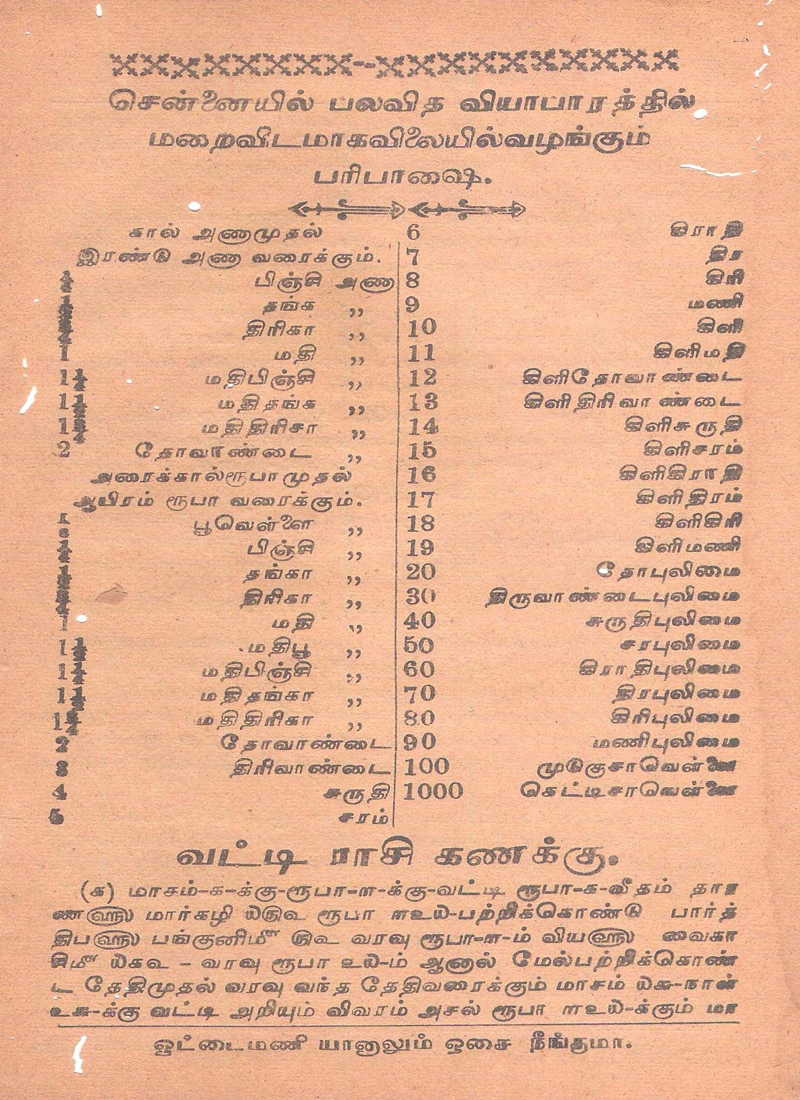 சென்னையில் பலவித வியாபாரத்தில்
மறைவிடமாகவிலையில்வழங்கும்
பரிபாஷை.
கால் அணாமுதல்
இரண்டு அணா வரைக்கும்.
¼ பிஞ்சி அணா
½ தங்க ,,
¾ திரிகா ,,
1 மதி ,,
1¼ மதிபிஞ்சி ,,
1½ மதிதங்க ,,
1¾ மதிதிரிசா ,,
2 தோவாண்டை ,,
அரைக்கால்ரூபாமுதல்
ஆயிரம் ரூபா வரைக்கும்.
பூவெள்ளை ,,
¼ பிஞ்சி ,,
½ தங்கா ,,
¾ திரிகா ,,
1 மதி ,,
மதிபூ ,,
1¼ மதிபிஞ்சி ,,
1½ மதிதங்கா ,,
1¾ மதிதிரிகா ,,
2 தோவாண்டை
3 திரிவாண்டை
4 சுருதி
5 சரம்
6 கிராதி
7 திர
8 கிரி
9 மணி
10 கிளி
11 கிளிமதி
12 கிளிதோவாண்டை
13 கிளிதிரிவாண்டை
14 கிளிசுருதி
15 கிளிசரம்
16 கிளிகிராதி
17 கிளிதிரம்
18 கிளிகிரி
19 கிளிமணி
20 தோபுலிமை
30 திருவாண்டைபுலிமை
40 சுருதிபுலிமை
50 சரபுலிமை
60 கிராதிபுலிமை
70 திரபுலிமை
80 கிரிபுலிமை
90 மணிபுலிமை
100 முடுகுசாவெள்ளை
1000 கெட்டிசாவெள்ளை
வட்டி ராசி கணக்கு.
(க) மாசம்-க-க்கு-ரூபா-௱-க்கு-வட்டி ரூபா-க-வீதம் தார
ணஹு மார்கழி ரூபா ௱உ௰-பற்றிக்கொண்டு பார்த்
திபஹு பங்குனிமீ வரவு ரூபா-௱-ம் வியஹு வைகா
சிமீ - வரவு ரூபா உ௰-ம் ஆனால் மேல்பற்றிக்கொண்
ட தேதிமுதல் வரவு வந்த தேதிவரைக்கும் மாசம் ௰சு-நாள்
உசு-க்கு வட்டி அறியும் விவரம் அசல் ரூபா ௱உ௰-க்கும் மா
ஓட்டைமணி யானாலும் ஓசை நீங்குமா.